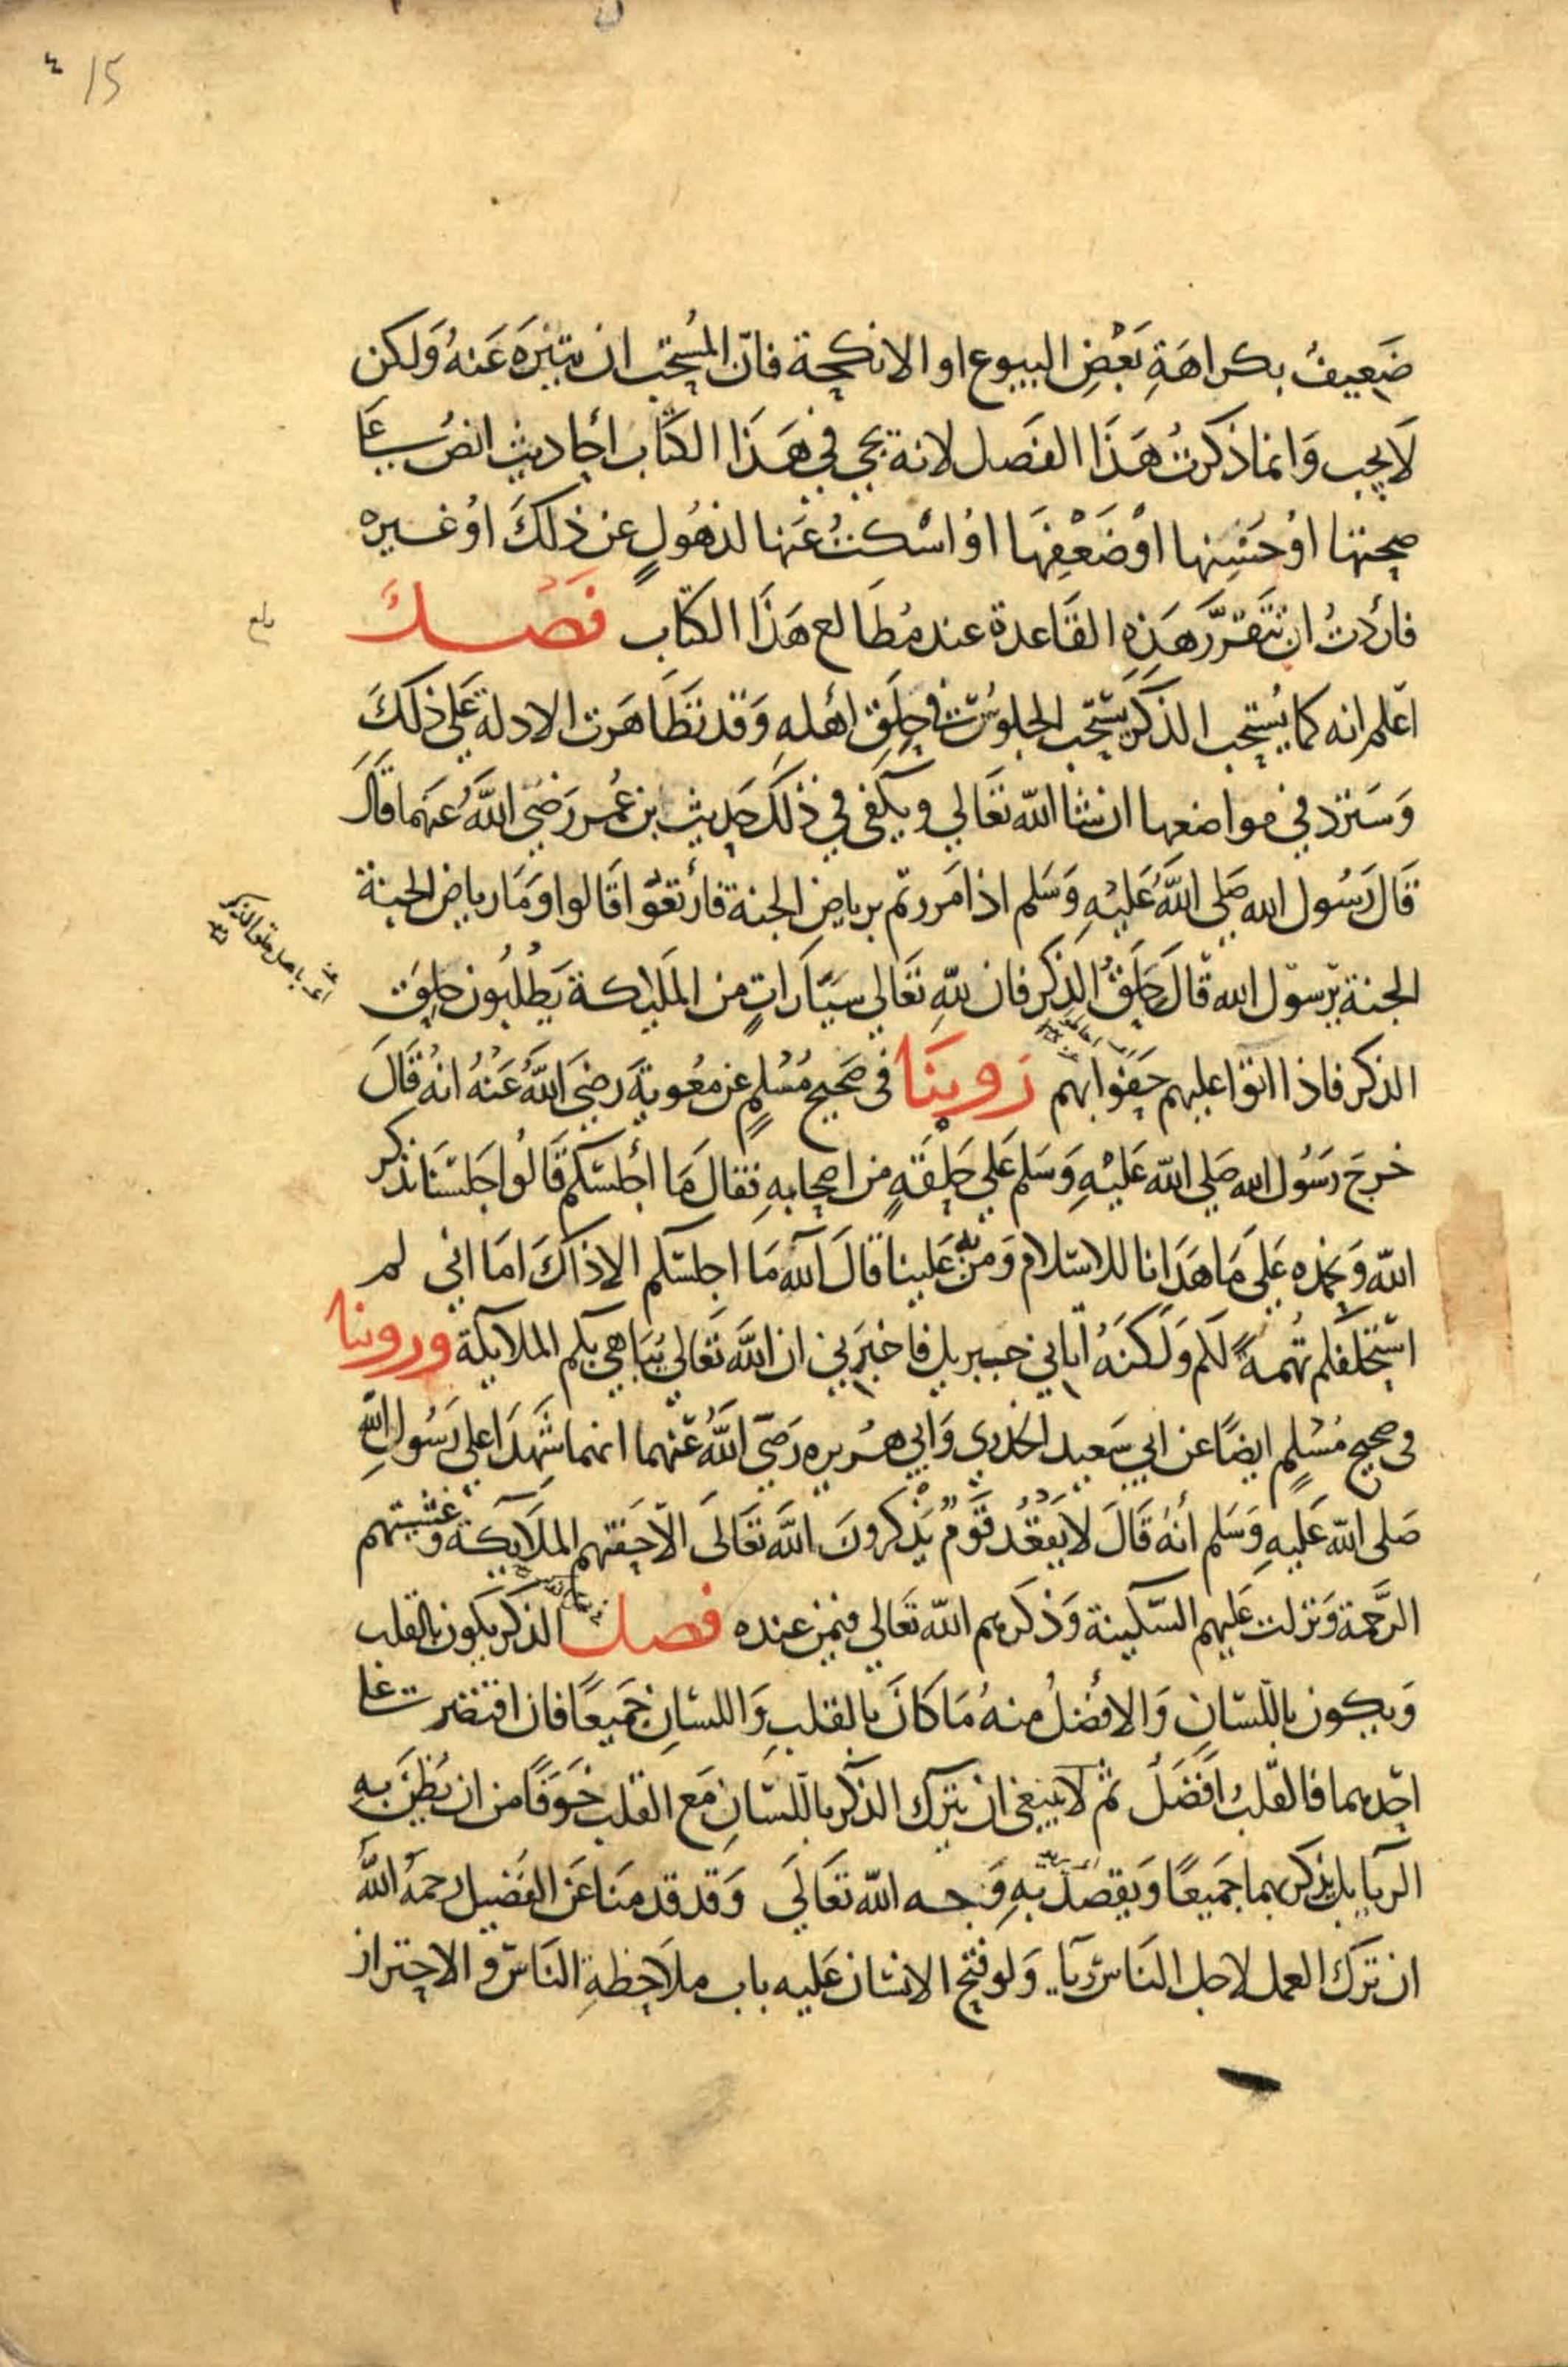 ٤ 15
ضَعِيفٌ بكراهَةِ بَعْضِ البيوع او الانكحة فانّ المُستحَبّ ان يتنزهَ عَنهُ وَلكن
لَا يجب وَانما ذكرتُ هَذَا الفَصل لانه يجي في هَذَا الكتَاب أحاديث انصُ عَلى
صحتها اوْ حَسَنها اوْ ضَعْفِهَا اوْ اسْكتُ عَنها لذهُولٍ عَن ذلكَ اوْ غيره
فاردْتُ ان تَتَقرّرَ هَذهِ القَاعدة عند مُطَالع هَذَا الكتاب فَصْلٌ
بلغ
اعْلم انه كما يُستحب الذكر يُستحب الجلوسُ في حِلَقِ أهلهِ وَقد تَظَاهَرت الادلة عَلى ذلكَ
وَسَترد في مواضعها ان شا الله تَعَالي ويكفى في ذلكَ حَديث بن عُمر رَضيَ اللَّهُ عَنهما قَالَ
قَالَ رَسُول الله صَلي اللَّهُ عَليْهِ وَسَلم اذا مَررتم برياضِ الجنة فارْتعُوا قَالوا وَمَا رياض الجنة
الجنة يرَسوُل الله قَالَ حِلَقُ الذِكر فان للهِ تعَالي سَيَّارَاتٍ مِن المَلَيكة يَطلُبُون حِلَق
الذكر فاذا اتوا عليهم حَفوا بهم رَوينَا في صَحيح مُسْلمٍ عَن مَعُوية رَضيَ اللَّهُ عَنْهُ انهُ قَالَ
خرجَ رَسُول الله صَلي الله عَليْهِ وَسَلم عَلي حَلقَةٍ من اصحابهِ فقالَ مَا أجلسَكم قَالُوا جَلسْنَا نذكر
اللهَ وَنحمده عَلَى مَا هَدَانا للاسلام وَمَنَّ به عَلينا قالَ آلله مَا اجلسَكم الا ذاكَ امَا اني لم
اسْتحلفكم تُهمةً لكم وَلكنهُ اتاني جبريل فاخبَرَني ان اللَّهَ تعَالَى يُبَاهي بكم الملايكة وروينا
في صحيح مُسْلمٍ ايضًا عن ابي سَعيد الخدري وَابي هُريره رَضيَ اللَّهُ عَنهما انهما شَهدَا عَلى رَسُول اللهِ
صَلى الله عَليهِ وَسَلم أنهُ قَالَ لا يَقعُدُ قَوْمٌ يَذكرونَ اللَّهَ تعَالَى الّا حَفتهم المَلَايكَة وغشيتهم
الرَّحمة وَنزلت عَليهم السّكينة وَذكرهم الله تَعَالي فيمن عنده فصل الذكر يكون بالقلب
وَيكون باللّسَانِ وَالافْضلُ منهُ مَا كَانَ بالقلبِ وَاللسَانِ جَميعًا فان اقتصَرت عَلى
احَدهما فالقلبُ افضَلُ ثم لا ينبغى ان يترك الذكر باللّسَانِ مَع القلبِ خَوَفًا من ان يُظنَ بهِ
الريَا بل يذكر بهما جَميعًا وَيقصدُ بهِ وَجه الله تعَالَى وَقد قدمنَا عَن الفُضيل رحمهُ اللَّهُ
ان تَرَكَ العمل لاجل النَاسِ ريَا وَلو فتح الانسَان عَليه باب ملَاحظةِ النَاسِ وَالاحتراز